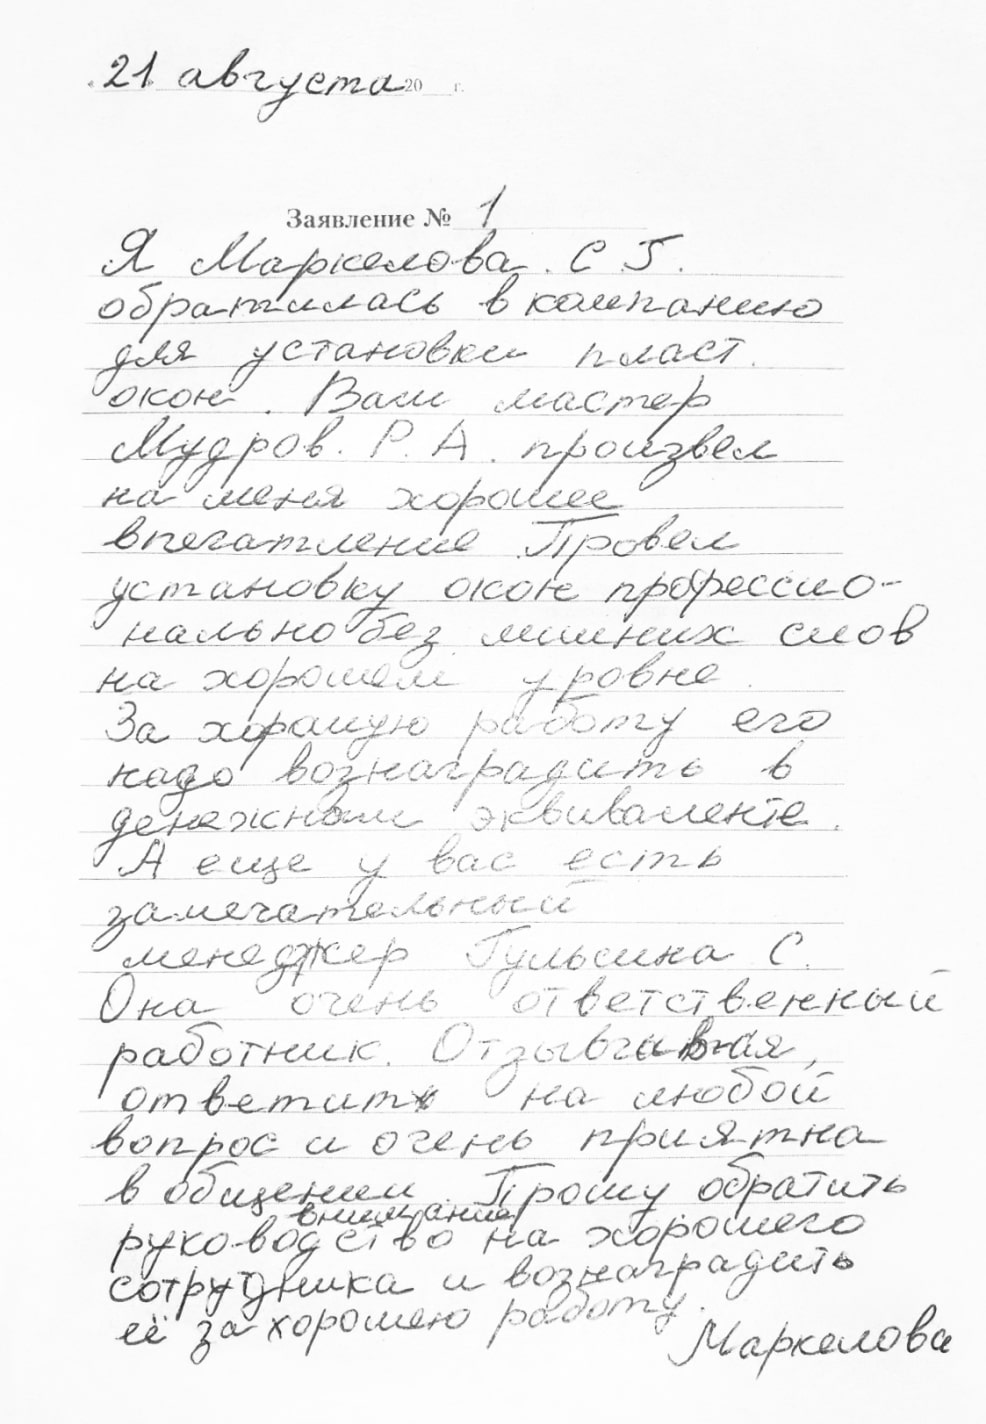 «21» августа 20 г.
Заявление № 1
Я Маркелова. С. Г.
обратилась в компанию
для установки пласт.
окон. Ваш мастер
Мудров. Р. А. произвел
на меня хорошее
впечатление. Провел
установку окон профессио-
нально без лишних слов
на хорошем уровне.
За хорошую работу его
надо вознаградить в
денежном эквиваленте.
А еще у вас есть
замечательный
менеджер Гульсина С.
Она очень ответственный
работник. Отзывчивая,
ответит на любой
вопрос и очень приятна
в общении. Прошу обратить
внимание
руководство на хорошего
сотрудника и вознаградить
её за хорошею работу.
Маркелова